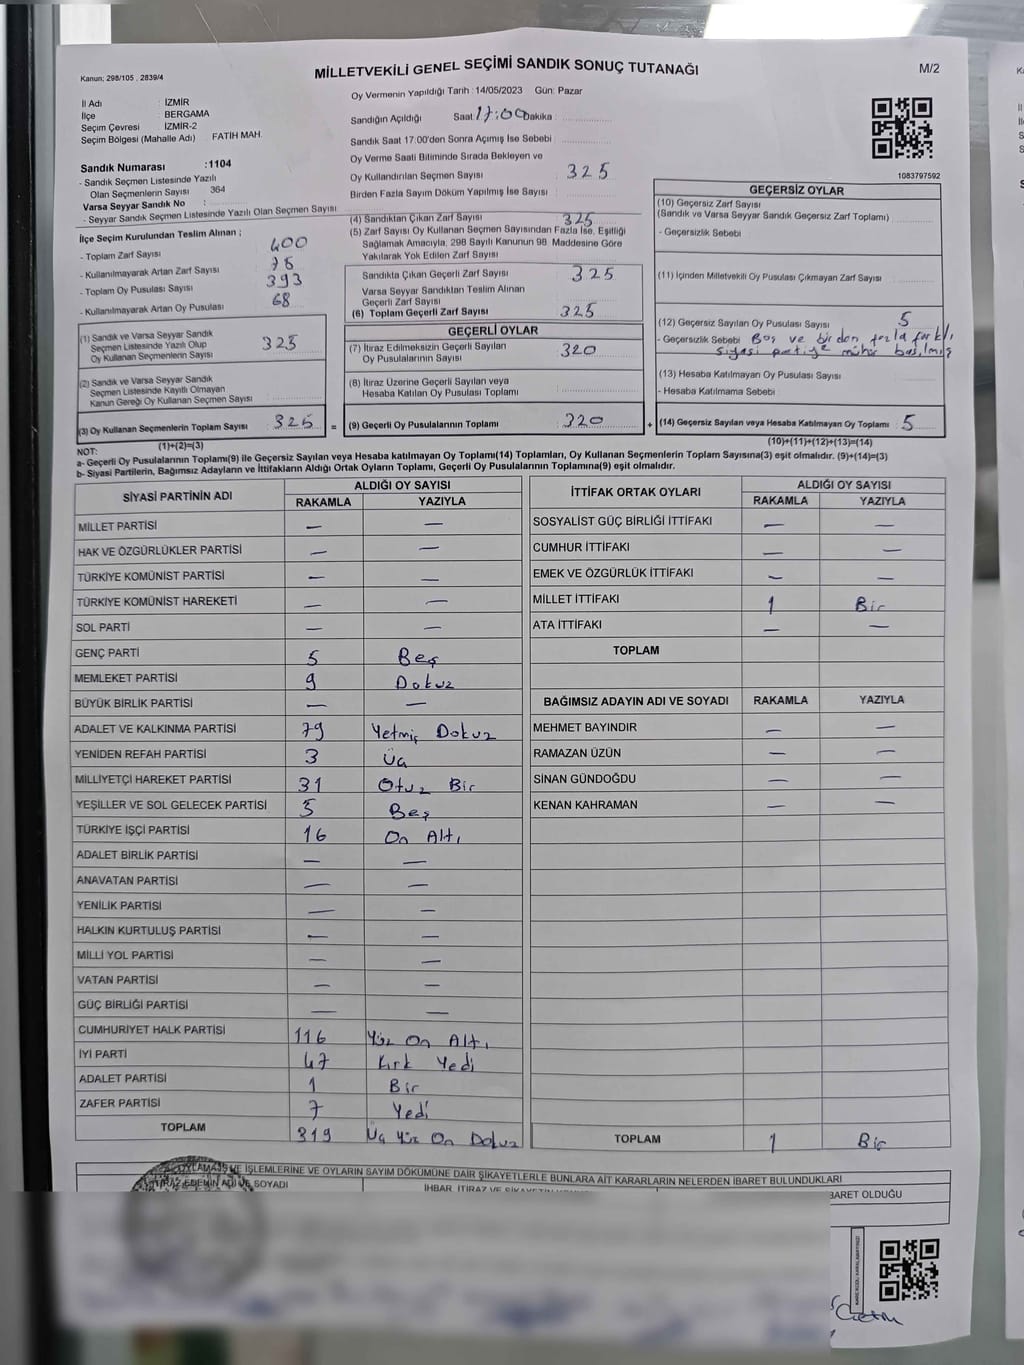 Kanun: 298/105 , 2839/4
MİLLETVEKİLİ GENEL SEÇİMİ SANDIK SONUÇ TUTANAĞI
M/2
İl Adı : İZMİR
İlçe : BERGAMA
Seçim Çevresi : İZMİR-2
Seçim Bölgesi (Mahalle Adı) FATİH MAH.
Sandık Numarası :1104
- Sandık Seçmen Listesinde Yazılı
Olan Seçmenlerin Sayısı 364
Varsa Seyyar Sandık No :
- Seyyar Sandık Seçmen Listesinde Yazılı Olan Seçmen Sayısı
İlçe Seçim Kurulundan Teslim Alınan ;
- Toplam Zarf Sayısı 400
- Kullanılmayarak Artan Zarf Sayısı 75
- Toplam Oy Pusulası Sayısı 393
- Kullanılmayarak Artan Oy Pusulası 68
(1) Sandık ve Varsa Seyyar Sandık
Seçmen Listesinde Yazılı Olup
Oy Kullanan Seçmenlerin Sayısı 325
(2) Sandık ve Varsa Seyyar Sandık
Seçmen Listesinde Kayıtlı Olmayan
Kanun Gereği Oy Kullanan Seçmen Sayısı
(3) Oy Kullanan Seçmenlerin Toplam Sayısı : 325 =
(1)+(2)=(3)
Oy Vermenin Yapıldığı Tarih : 14/05/2023 Gün: Pazar
Sandığın Açıldığı Saat 17:00 Dakika :
Sandık Saat 17:00'den Sonra Açımış İse Sebebi :
Oy Verme Saati Bitiminde Sırada Bekleyen ve
Oy Kullandırılan Seçmen Sayısı 325
Birden Fazla Sayım Döküm Yapılmış İse Sayısı
(4) Sandıktan Çıkan Zarf Sayısı 325
(5) Zarf Sayısı Oy Kullanan Seçmen Sayısından Fazla İse, Eşitliği
Sağlamak Amacıyla, 298 Sayılı Kanunun 98 Maddesine Göre
Yakılarak Yok Edilen Zarf Sayısı
Sandıkta Çıkan Geçerli Zarf Sayısı 325
Varsa Seyyar Sandıktan Teslim Alınan
Geçerli Zarf Sayısı
(6) Toplam Geçerli Zarf Sayısı 325
GEÇERLİ OYLAR
(7) İtiraz Edilmeksizin Geçerli Sayılan
Oy Pusulalarının Sayısı 320
(8) İtiraz Üzerine Geçerli Sayılan veya
Hesaba Katılan Oy Pusulası Toplamı
(9) Geçerli Oy Pusulalarının Toplamı : 320 +
1083797592
GEÇERSİZ OYLAR
(10) Geçersiz Zarf Sayısı
(Sandık ve Varsa Seyyar Sandık Geçersiz Zarf Toplamı)
- Geçersizlik Sebebi :
(11) İçinden Milletvekili Oy Pusulası Çıkmayan Zarf Sayısı
(12) Geçersiz Sayılan Oy Pusulası Sayısı 5
- Geçersizlik Sebebi Boş ve birden fazla farklı
siyasi partiye mühür basılmış
(13) Hesaba Katılmayan Oy Pusulası Sayısı
- Hesaba Katılmama Sebebi :
(14) Geçersiz Sayılan veya Hesaba Katılmayan Oy Toplamı : 5
(10)+(11)+(12)+(13)=(14)
NOT:
a- Geçerli Oy Pusulalarının Toplamı(9) ile Geçersiz Sayılan veya Hesaba katılmayan Oy Toplamı(14) Toplamları, Oy Kullanan Seçmenlerin Toplam Sayısına(3) eşit olmalıdır. (9)+(14)=(3)
b- Siyasi Partilerin, Bağımsız Adayların ve İttifakların Aldığı Ortak Oyların Toplamı, Geçerli Oy Pusulalarının Toplamına(9) eşit olmalıdır.
SİYASİ PARTİNİN ADI ALDIĞI OY SAYISI
RAKAMLA YAZIYLA
MİLLET PARTİSİ — —
HAK VE ÖZGÜRLÜKLER PARTİSİ — —
TÜRKİYE KOMÜNİST PARTİSİ — —
TÜRKİYE KOMÜNİST HAREKETİ — —
SOL PARTİ — —
GENÇ PARTİ 5 Beş
MEMLEKET PARTİSİ 9 Dokuz
BÜYÜK BİRLİK PARTİSİ — —
ADALET VE KALKINMA PARTİSİ 79 Yetmiş Dokuz
YENİDEN REFAH PARTİSİ 3 Üç
MİLLİYETÇİ HAREKET PARTİSİ 31 Otuz Bir
YEŞİLLER VE SOL GELECEK PARTİSİ 5 Beş
TÜRKİYE İŞÇİ PARTİSİ 16 On Altı
ADALET BİRLİK PARTİSİ — —
ANAVATAN PARTİSİ — —
YENİLİK PARTİSİ — —
HALKIN KURTULUŞ PARTİSİ — —
MİLLİ YOL PARTİSİ — —
VATAN PARTİSİ — —
GÜÇ BİRLİĞİ PARTİSİ — —
CUMHURİYET HALK PARTİSİ 116 Yüz On Altı
İYİ PARTİ 47 Kırk Yedi
ADALET PARTİSİ 1 Bir
ZAFER PARTİSİ 7 Yedi
TOPLAM 319 Üç Yüz On Dokuz
İTTİFAK ORTAK OYLARI ALDIĞI OY SAYISI
RAKAMLA YAZIYLA
SOSYALİST GÜÇ BİRLİĞİ İTTİFAKI — —
CUMHUR İTTİFAKI — —
EMEK VE ÖZGÜRLÜK İTTİFAKI — —
MİLLET İTTİFAKI 1 Bir
ATA İTTİFAKI — —
TOPLAM
BAĞIMSIZ ADAYIN ADI VE SOYADI RAKAMLA YAZIYLA
MEHMET BAYINDIR — —
RAMAZAN ÜZÜN — —
SİNAN GÜNDOĞDU — —
KENAN KAHRAMAN — —
TOPLAM 1 Bir
OYLAMA İŞ VE İŞLEMLERİNE VE OYLARIN SAYIM DÖKÜMÜNE DAİR ŞİKAYETLERLE BUNLARA AİT KARARLARIN NELERDEN İBARET BULUNDUKLARI
İTİRAZ EDENİN ADI VE SOYADI
BARET OLDUĞU